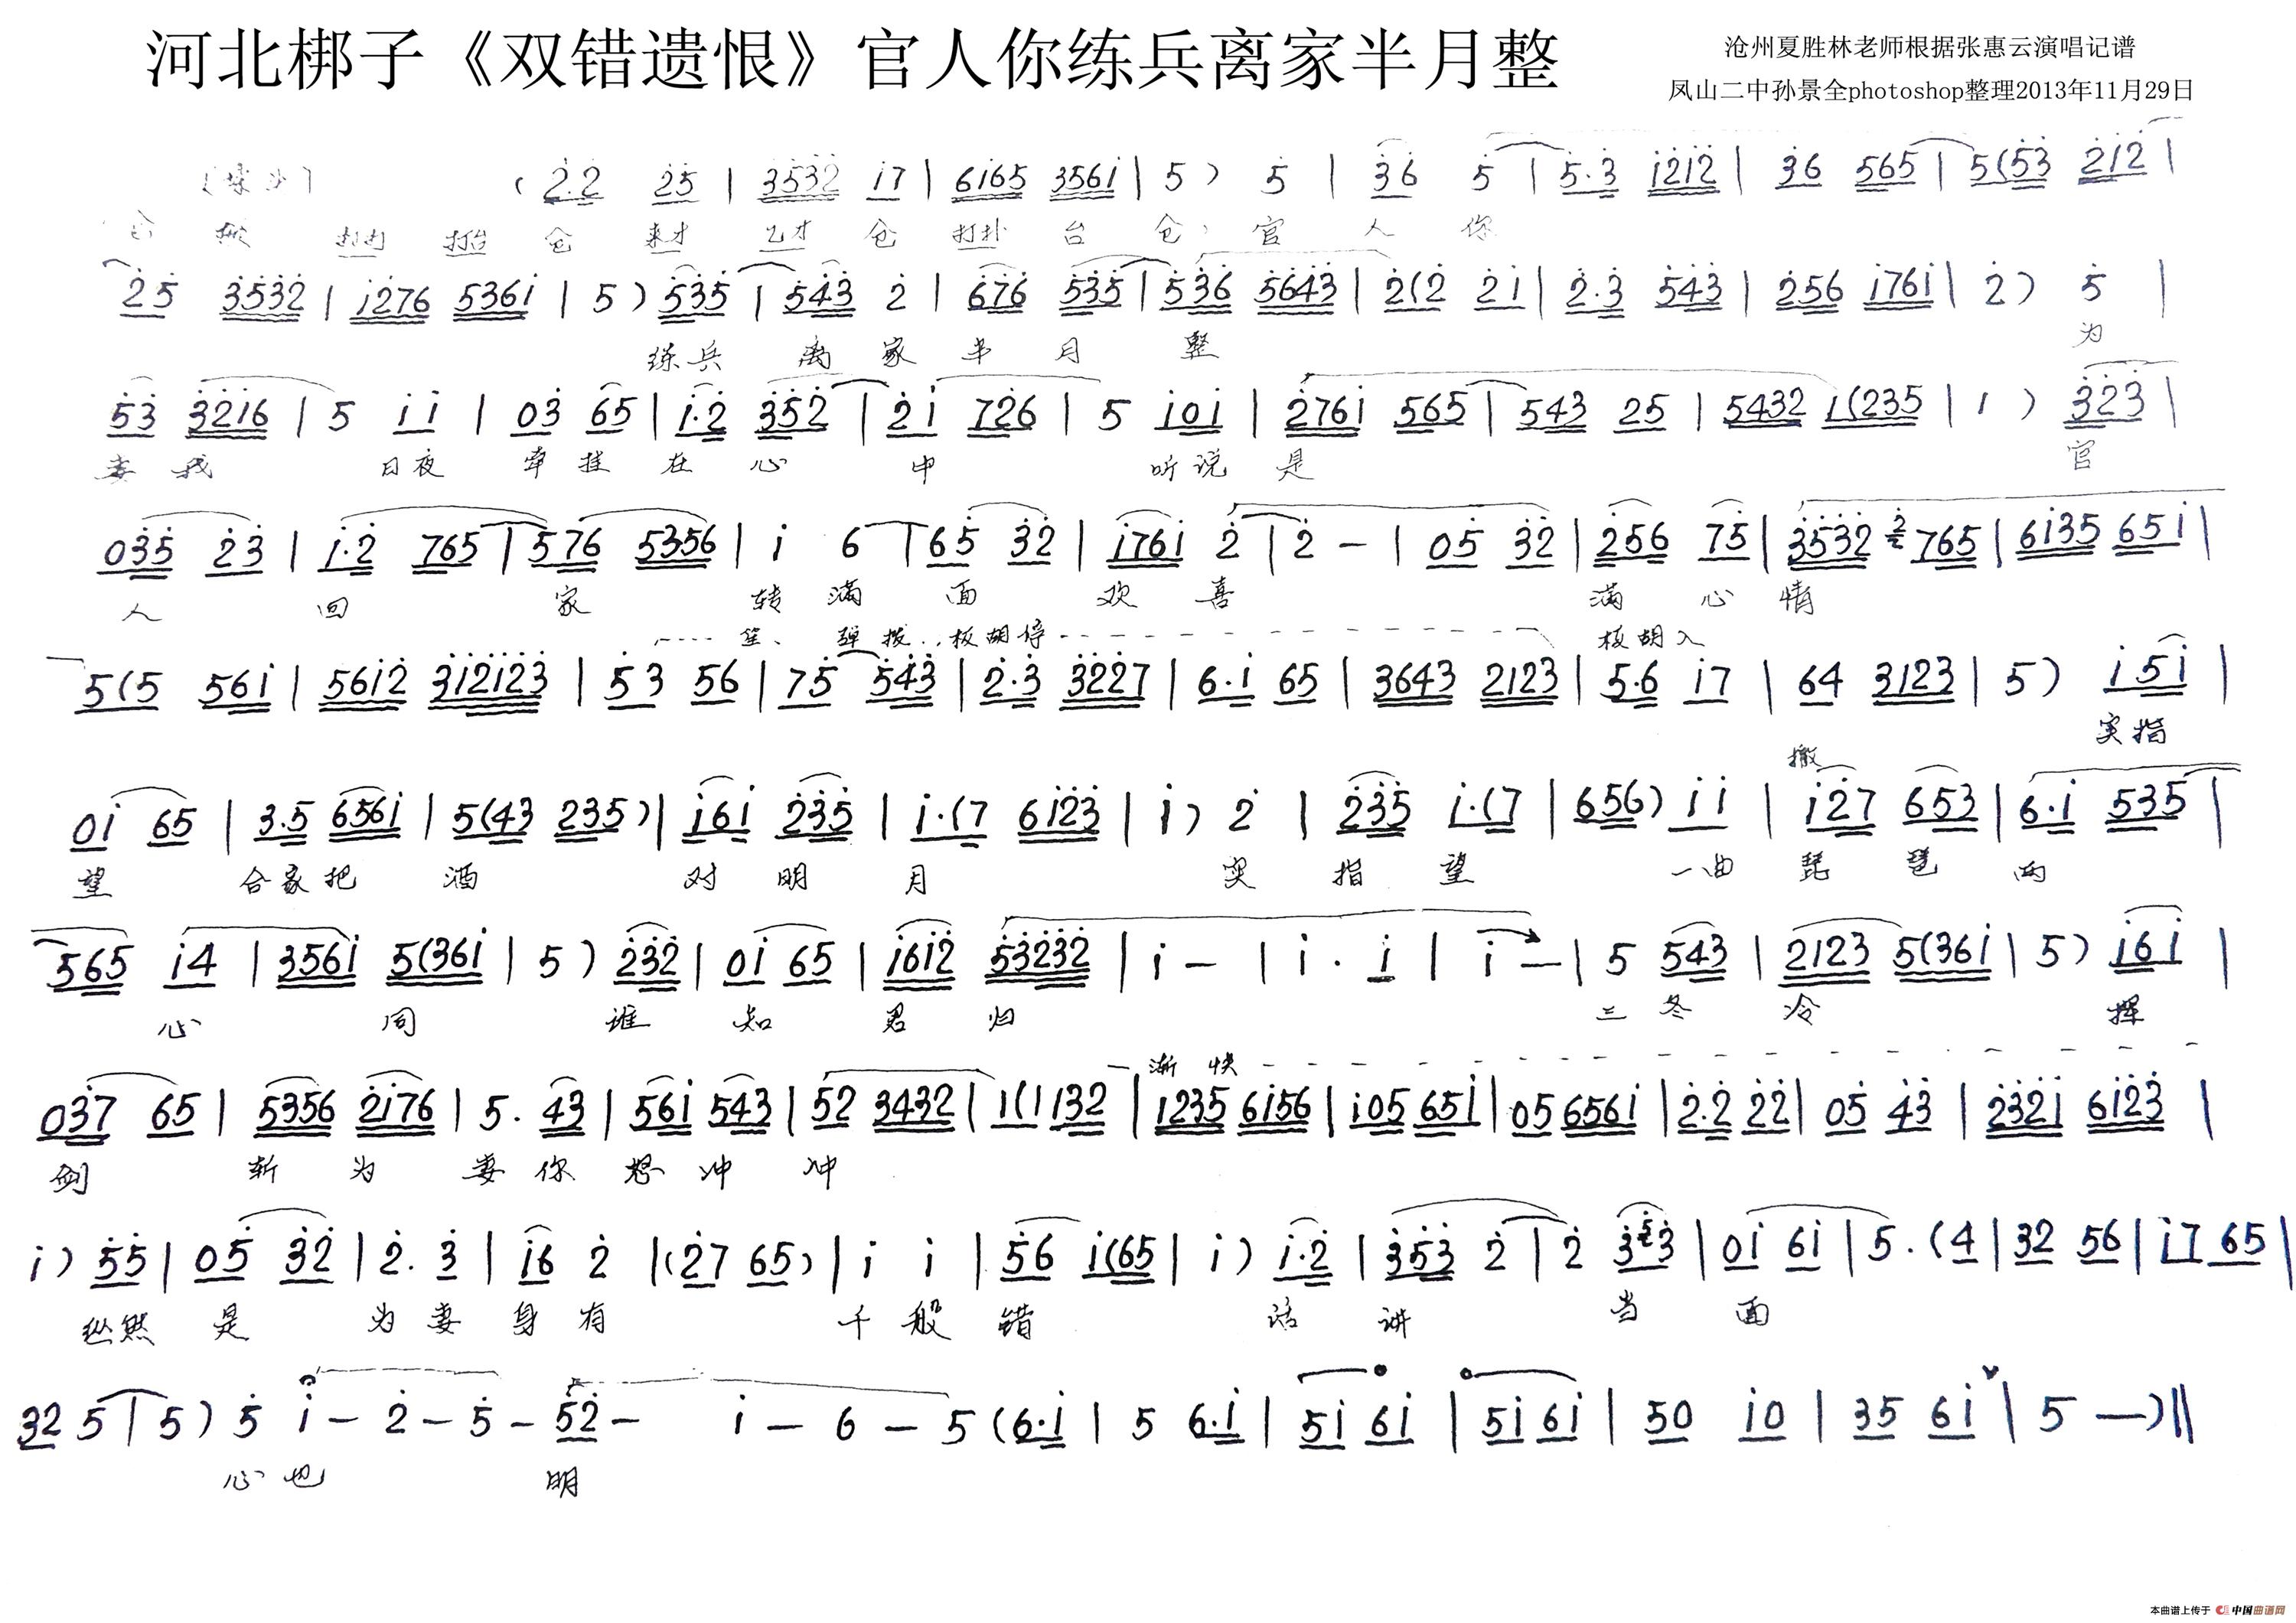 河北梆子《双错遗恨》官人你练兵离家半月整
沧州夏胜林老师根据张惠云演唱记谱
凤山二中孙景全photoshop整理2013年11月29日
(2.2 25 | 3532 i7 | 6i65 356i | 5) 5 | 36 5 | 5.3 i2i2 | 36 565 | 5(53 2i2 |
仓 来才 乙才 仓 打扑 台 仓 官 人 你
25 3532 | i276 536i | 5) 535 | 543 2 | 676 535 | 536 5643 | 2(2 2i | 2.3 543 | 256 i76i | 2) 5 |
练兵 离 家 半 月 整 为
53 32i6 | 5 ii | 03 65 | i.2 352 | 2i 726 | 5 i0i | 276i 565 | 543 25 | 5432 1(235 | 1) 323 |
妻 我 日夜 牵 挂 在 心 中 听说 是 官
035 23 | i.2 765 | 576 5356 | i 6 | 65 32 | i76i 2 | 2 — | 05 32 | 256 75 | 3532 2 765 | 6i35 65i |
人 回 家 转 满 面 欢 喜 满 心 情
笙、弹拨..板胡停 板胡入
5(5 56i | 56i2 3i2i23 | 53 56 | 75 543 | 2.3 3227 | 6.i 65 | 3643 2123 | 5.6 i7 | 64 3123 | 5) i5i |
实指
撤
0i 65 | 3.5 656i | 5(43 235) | i6i 235 | i.(7 6i23 | i) 2 | 235 i.(7 | 656) ii | i27 653 | 6.i 535 |
望 合家把 酒 对 明 月 实 指 望 一曲 琵 琶 两
565 i4 | 356i 5(36i | 5) 232 | 0i 65 | i6i2 53232 | i — | i . i | i — | 5 543 | 2123 5(36i | 5) i6i |
心 同 谁 知 君 归 三 冬 冷 挥
渐 快
037 65 | 5356 2i76 | 5. 43 | 56i 543 | 52 3432 | 1(1 132 | 1235 6i56 | i05 65i | 05 656i | 2.2 22 | 05 43 | 232i 6i23 |
剑 斩 为 妻 你 想 冲 冲
i) 55 | 05 32 | 2. 3 | i6 2 | (27 65) | i i | 56 i(65 | i) i.2 | 353 2 | 2 353 | 0i 6i | 5. (4 | 32 56 | i7 65 |
纵然 是 为 妻 身 有 千 般 错 话 讲 当 面
32 5 | 5) 5 i — 2 — 5 — 52 — i — 6 — 5 (6.i | 5 6.i | 5i 6i | 5i 6i | 50 i0 | 35 6i | 5 — )||
心 也 明
本曲谱上传于 中国曲谱网